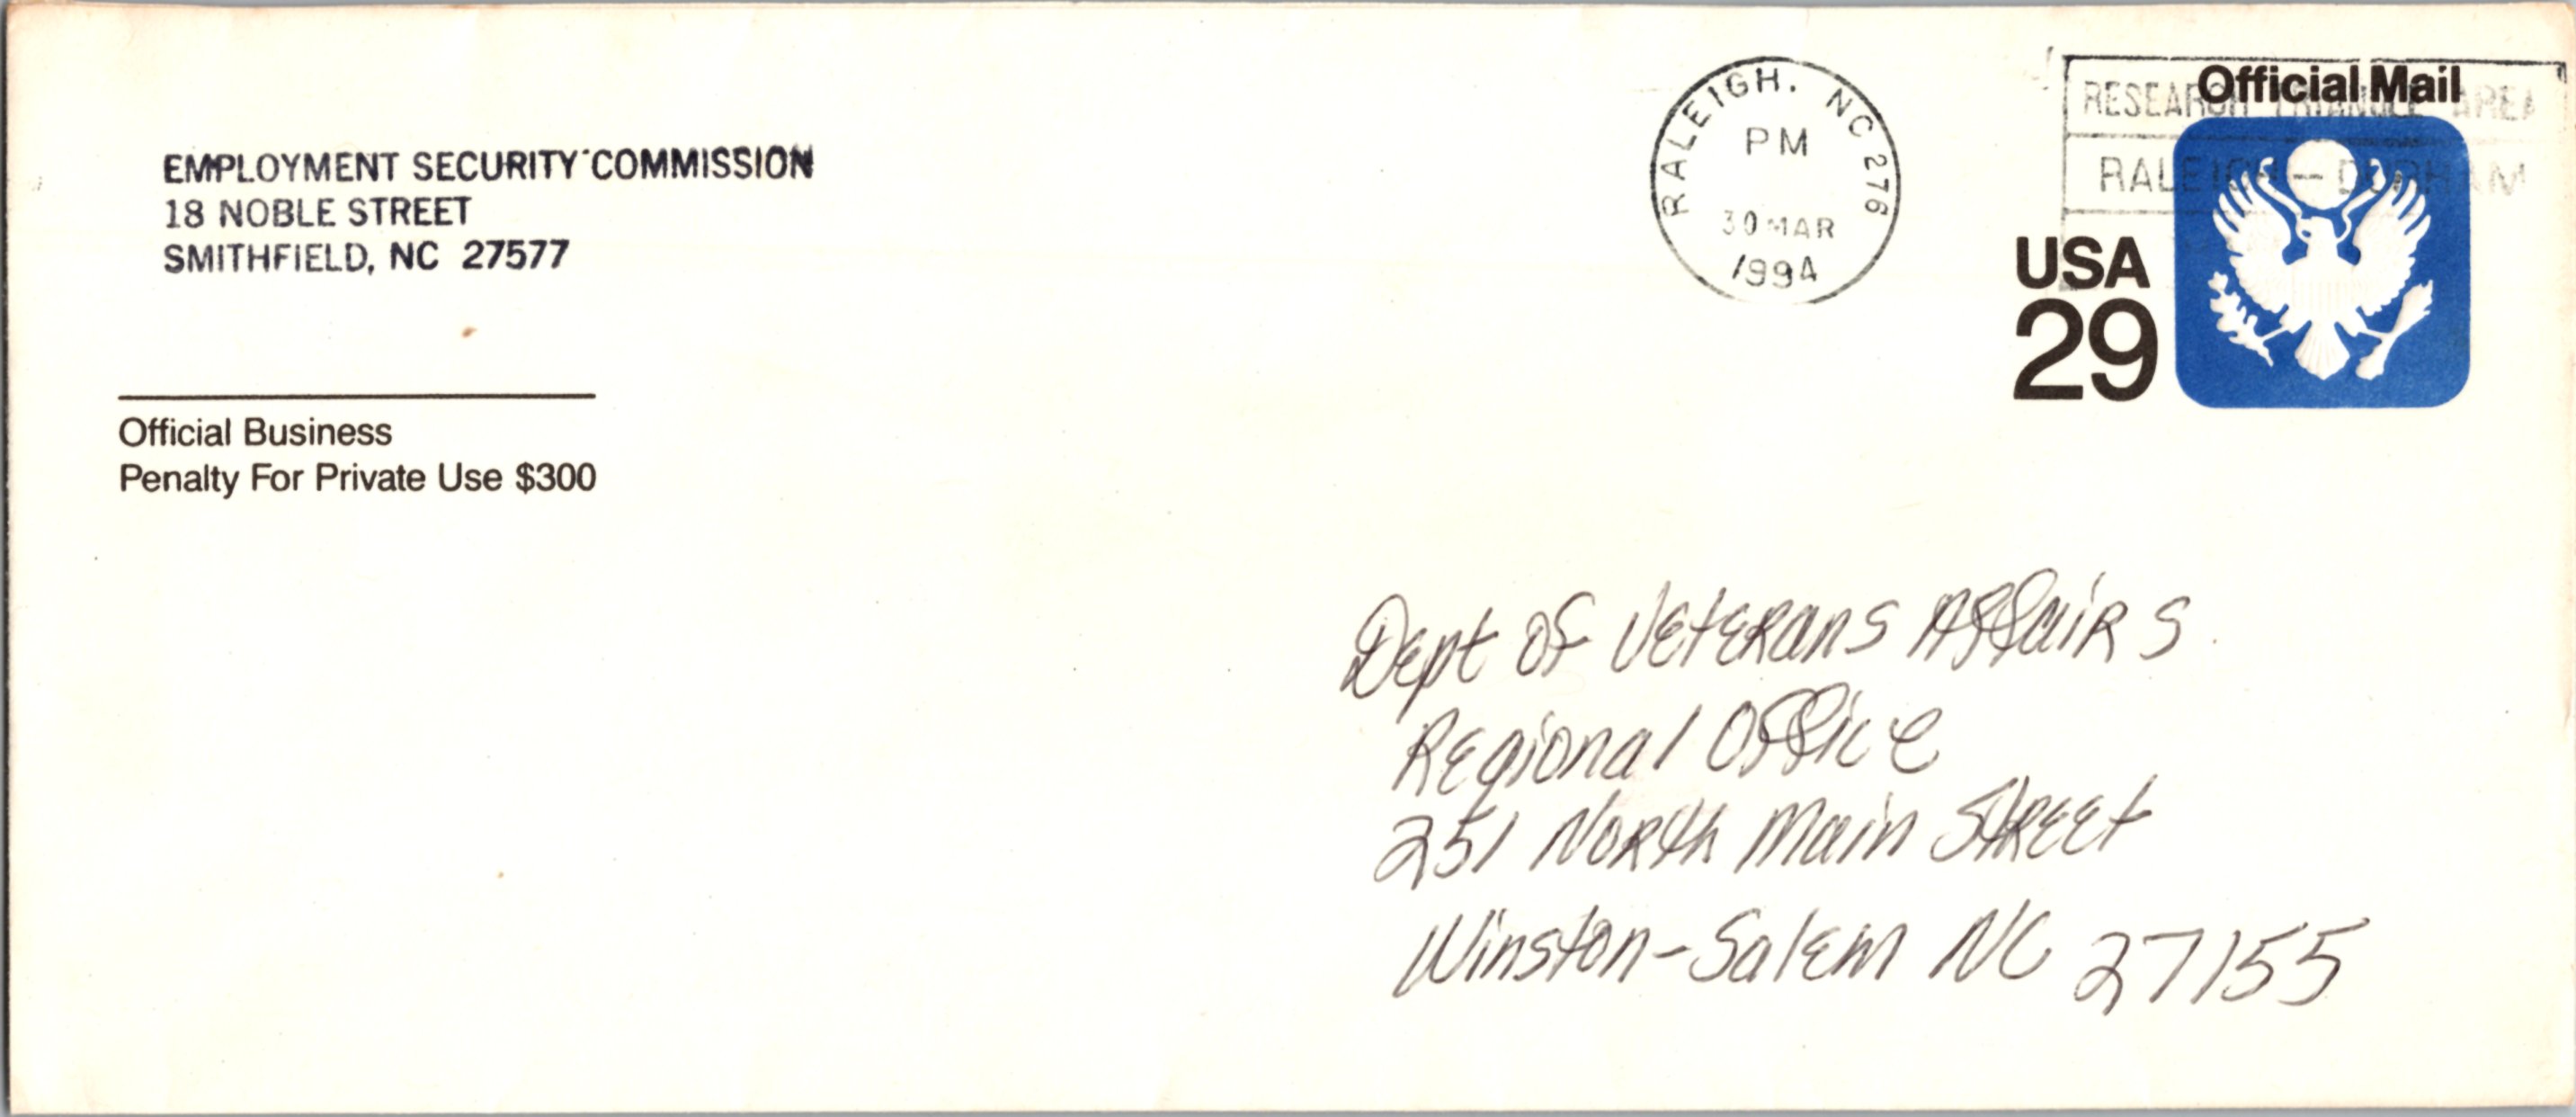 EMPLOYMENT SECURITY COMMISSION
18 NOBLE STREET
SMITHFIELD, NC 27577
Official Business
Penalty For Private Use $300
RALEIGH, NC 276
PM
30 MAR
1994
RESEARCH TRIANGLE AREA
RALEIGH - DURHAM
Official Mail
USA
29
Dept of Veterans Affairs
Regional Office
251 North Main Street
Winston-Salem NC 27155